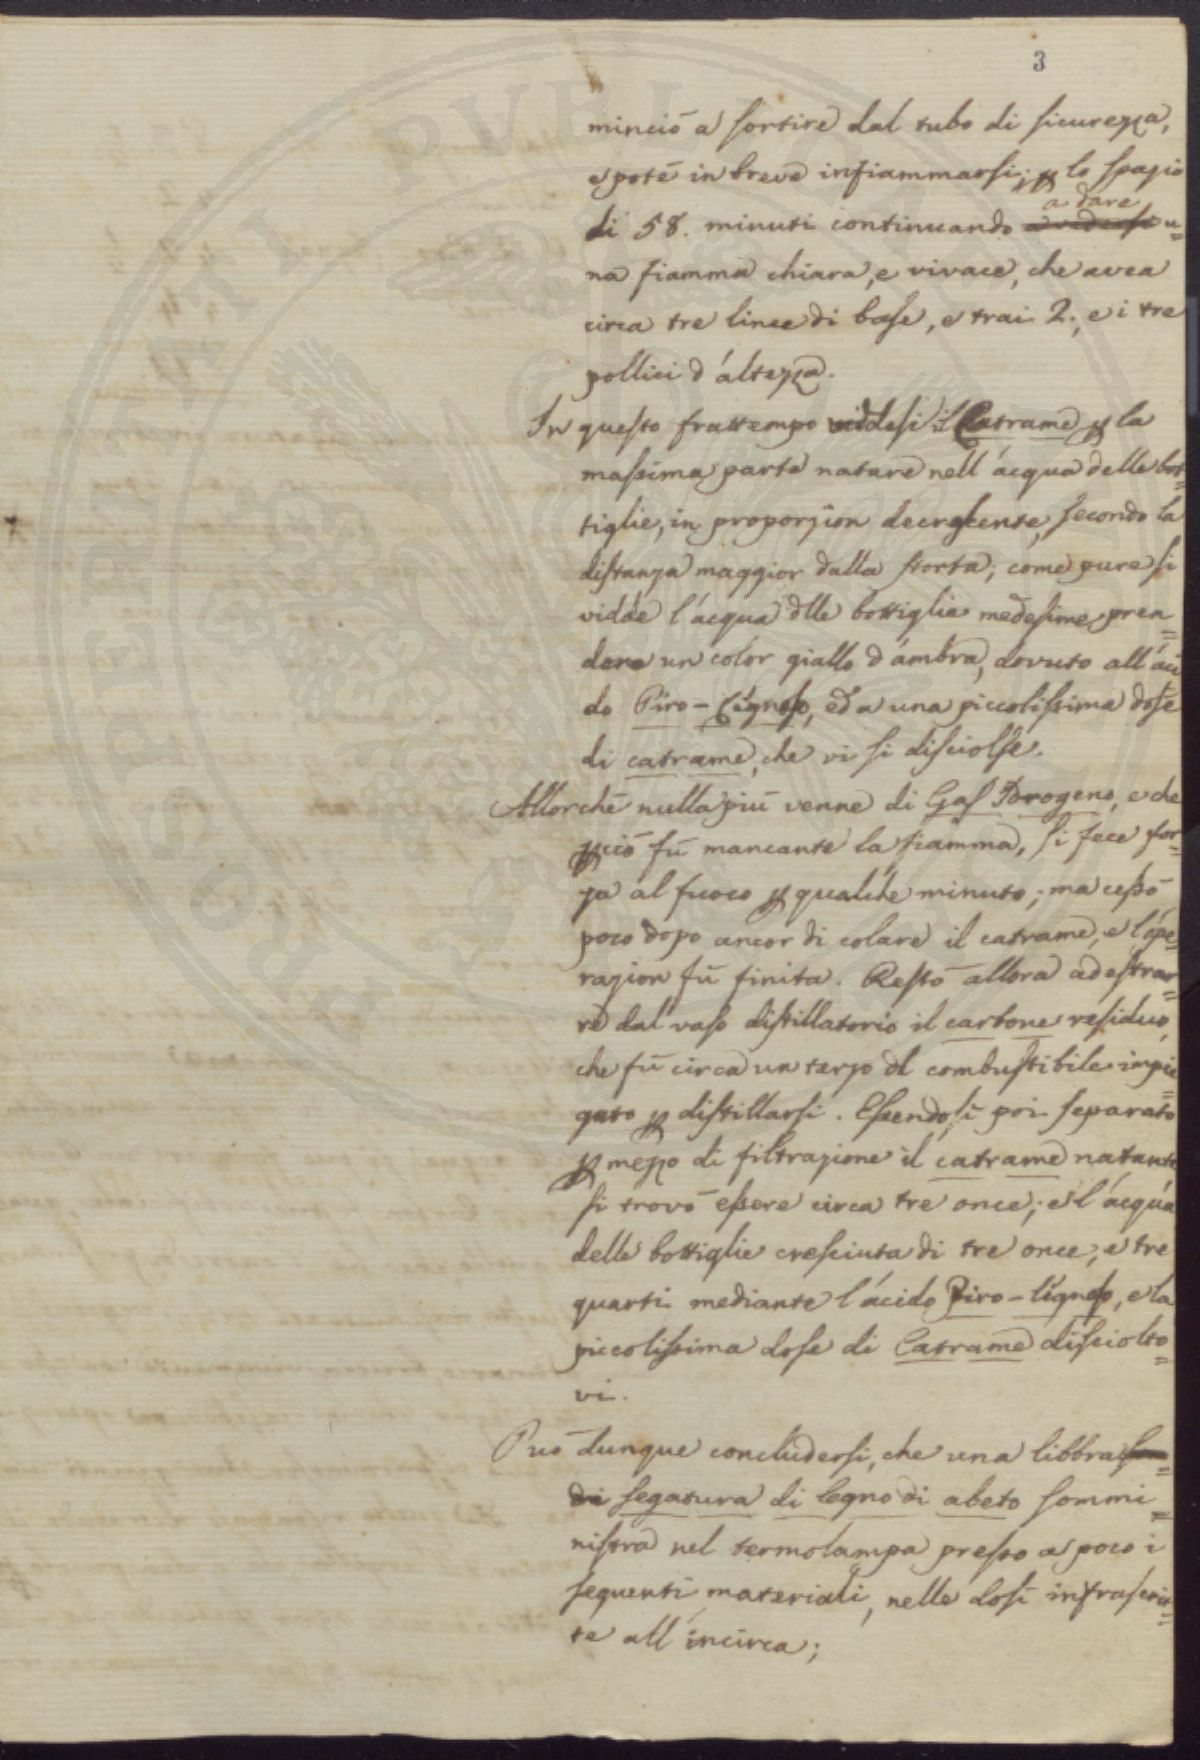 3
minciò a sortire dal tubo di sicurezza,
e potè in breve infiammarsi; p lo spazio
a dare
di 58. minuti continuando a vedersi u=
na fiamma chiara, e vivace, che avea
circa tre linee di base, e trai 2., e i tre
pollici d'altezza.
In questo frattempo viddesi il Catrame p la
massima parte natare nell'acqua delle bot=
tiglie, in proporzion decrescente, secondo la
distanza maggior dalla storta; come pure si
vidde l'acqua dlle bottiglie medesime pren=
dere un color giallo d'ambra, dovuto all'aci
do Piro-Lignoso, ed a una piccolissima dose
di catrame, che vi si disciolse.
Allorchè nulla più venne di Gas Idrogeno, e che
pciò fù mancante la fiamma, si fece for=
za al fuoco p qualche minuto; ma cessò
poco dopo ancor di colare il catrame, e l'ope=
razion fù finita. Restò allora ad estrar=
re dal vaso distillatorio il carbone residuo,
che fù circa un terzo dl combustibile impie=
gato p distillarsi. Essendosi poi separato
p mezzo di filtrazione il catrame natante
si trovò essere circa tre once; e l'acqua
delle bottiglie cresciuta di tre once, e tre
quarti mediante l'acido Piro-lignoso, e la
piccolissima dose di Catrame disciolto=
vi.
Può dunque concludersi, che una libbra
di segatura di legno di abeto sommi=
nistra nel termolampa presso a poco i
seguenti materiali, nelle dosi infrascrit=
te all'incirca;
PROSPERITATI PUBLICAE